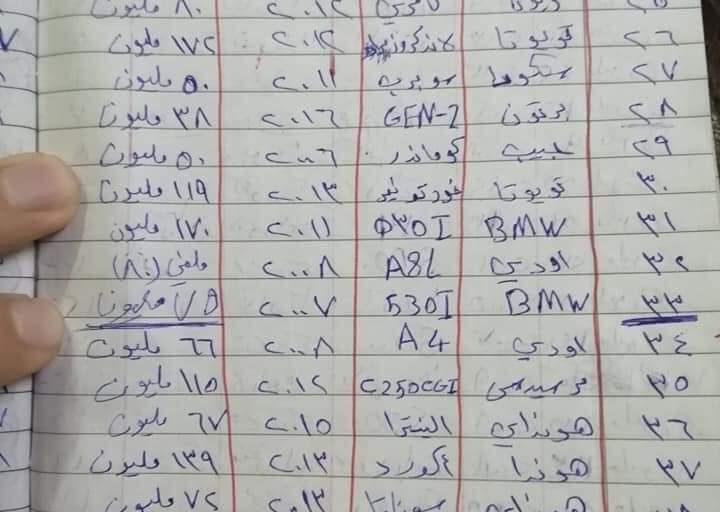 ٢٦ تويوتا لاندكروزر ٢٠١٢ ١٧٢ مليون
٢٧ سكودا سوبرب ٢٠١١ ٥٠ مليون
٢٨ برتون GEN-2 ٢٠١٦ ٣٨ مليون
٢٩ جيب كوماندر ٢٠٠٦ ٥٠ مليون
٣٠ تويوتا فورتونر ٢٠١٣ ١١٩ مليون
٣١ BMW ٥٣٥I ٢٠١١ ١٧٠ مليون
٣٢ اودي A8L ٢٠٠٨ ملغي (٨٠)
٣٣ BMW 530I ٢٠٠٧ ٧٥ مليون
٣٤ اودي A4 ٢٠٠٨ ٦٦ مليون
٣٥ مرسيدس C250CGI ٢٠١٢ ١١٥ مليون
٣٦ هونداي النترا ٢٠١٥ ٦٧ مليون
٣٧ هوندا اكورد ٢٠١٣ ١٣٩ مليون
هونداي سوناتا ٢٠١٣ ٧٢ مليون